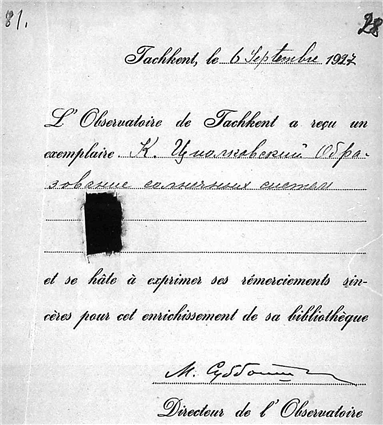 81.
28
Tachkent, le 6 Septembre 1927
L'Observatoire de Tachkent a reçu un
exemplaire К. Циолковский Обра-
зование солнечных систем
et se hâte à exprimer ses rémerciements sin-
cères pour cet enrichissement de sa bibliothèque
М. Субботин
Directeur de l'Observatoire